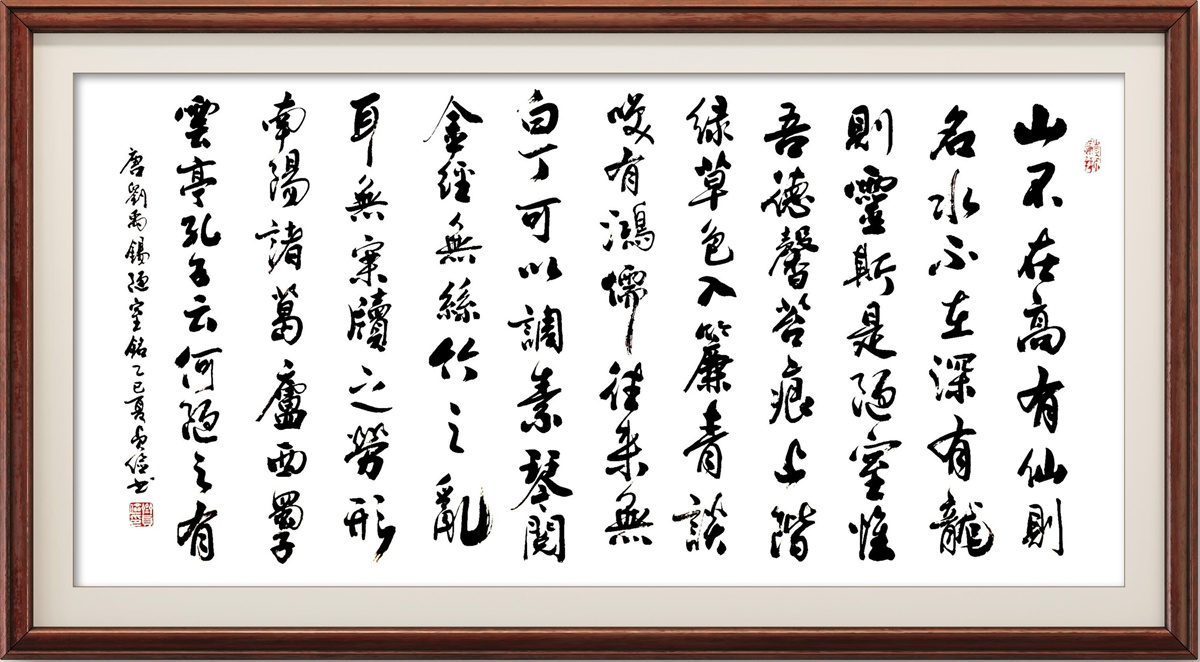 山不在高有仙則
名水不在深有龍
則靈斯是陋室惟
吾德馨苔痕上階
綠草色入簾青談
咲有鴻儒往来無
白丁可以調素琴閱
金經無絲竹之亂
耳無案牘之勞形
南陽諸葛廬西蜀子
雲亭孔子云何陋之有
唐劉禹錫陋室銘乙巳夏書